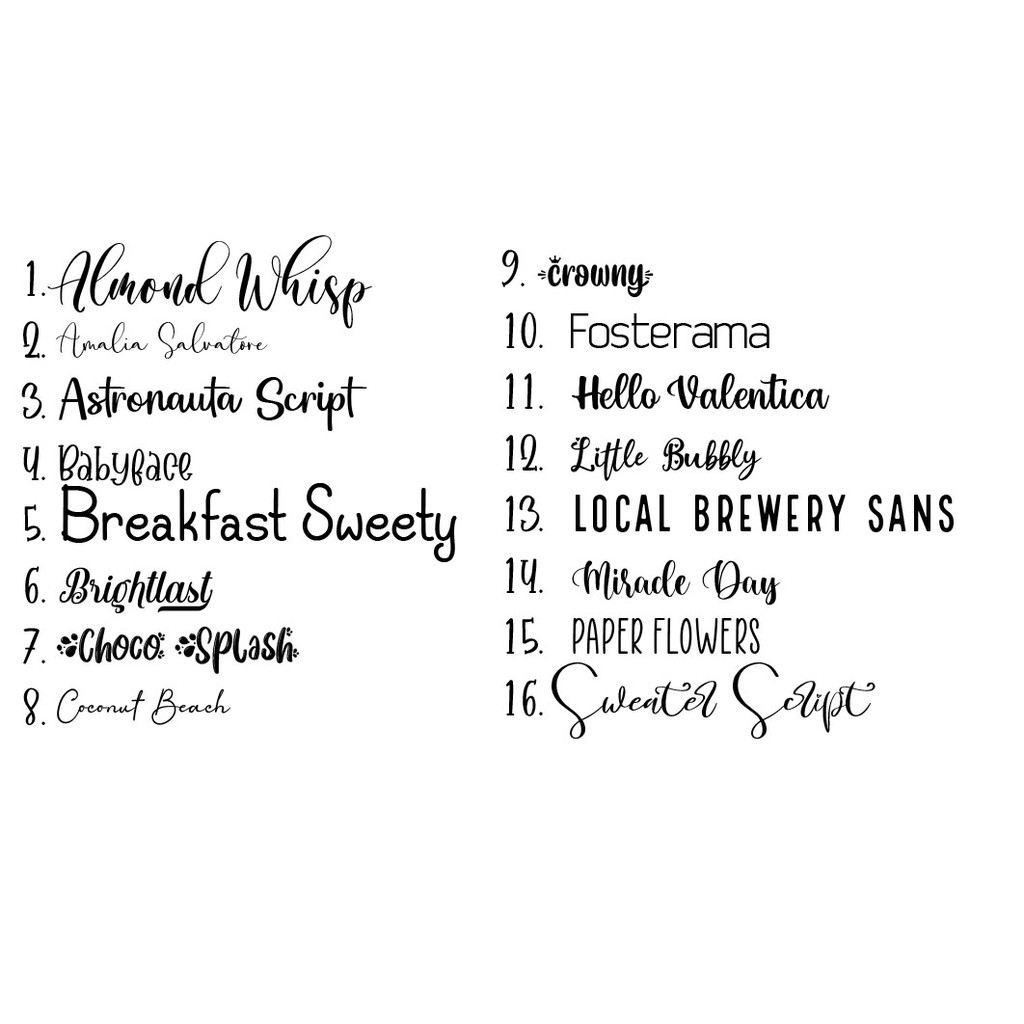 1. Almond Whisp
2. Amalia Salvatore
3. Astronauta Script
4. Babyface
5. Breakfast Sweety
6. Brightlast
7. Choco Splash
8. Coconut Beach
9. crowny
10. Fosterama
11. Hello Valentica
12. Little Bubbly
13. LOCAL BREWERY SANS
14. Miracle Day
15. PAPER FLOWERS
16. Sweater Script